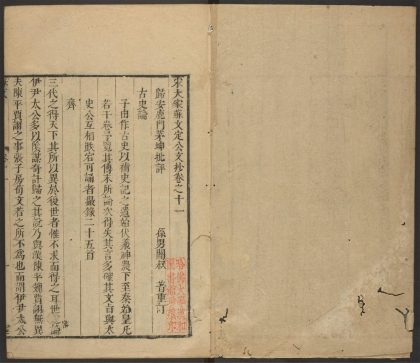 宋大家蘇文定公文抄卷之十一
歸安鹿門茅坤批評
孫男闇叔 著重訂
古史論
子由作古史以補史記之遺始伏羲神農下至秦始皇凡
若干卷予覽其傳末所論次得失其言多確其文自與太
史公互相跌宕可誦者最錄二十五首
齊
三代之得天下其所以異於後世者惟不求而得之耳世論
伊尹太公多以陰謀奇計歸之其說乃與漢陳平魏賈詡無異
夫陳平賈詡之事張子房荀文若之所不為也而謂伊尹太公